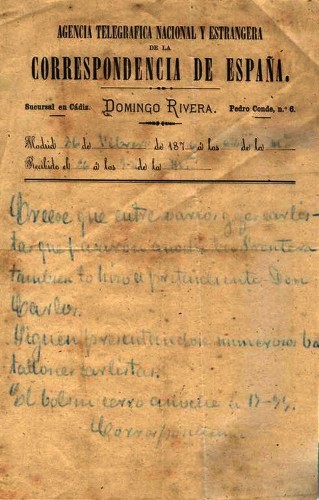 AGENCIA TELEGRAFICA NACIONAL Y ESTRANGERA
DE LA
CORRESPONDENCIA DE ESPAÑA.
Sucursal en Cádiz. DOMINGO RIVERA. Pedro Conde, n.º 6.
Madrid de de 187 a las de la
Recibido el a las de la
Creese que entre varios gefes carlis-
tas que pasaron anoche la frontera
tambien lo hizo el pretendiente Don
Carlos.
Siguen presentandose numerosos ba
tallones carlistas.
El bolsin cerro anoche á
Correspondencia